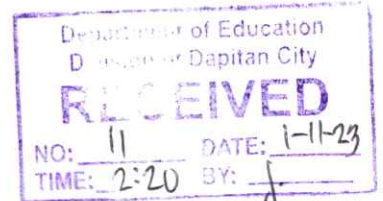 Department of Education
Division of Dapitan City
RECEIVED
NO: 11 DATE: 1-11-23
TIME: 2:20 BY: